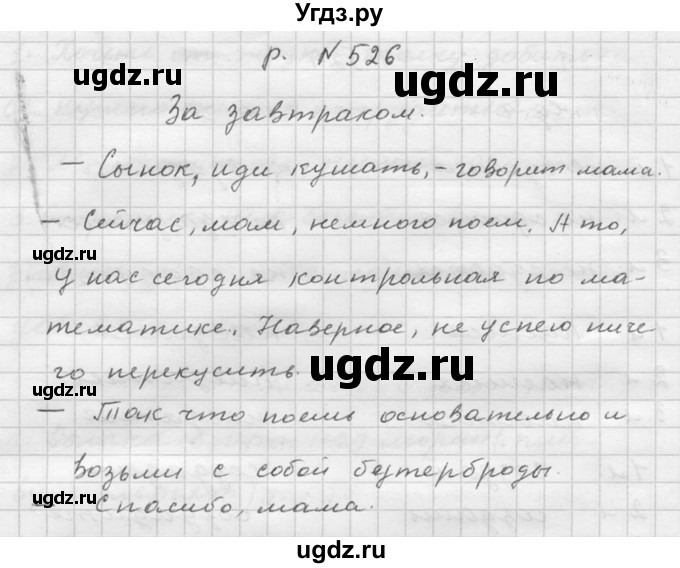 Угдз.ру
р. № 526
ugdz.ru ugdz.ru
За завтраком.
ugdz.ru
— Сынок, иди кушать, - говорит мама.
— Сейчас, мам, немного поем. А то,
ugdz.ru
у нас сегодня контрольная по ма-
тематике. Наверное, не успею ниче
го перекусить.
ugdz.ru ugdz.ru
— Так что поешь основательно и
возьми с собой бутерброды.
ugdz.ru
— Спасибо, мама.
ugdz.ru